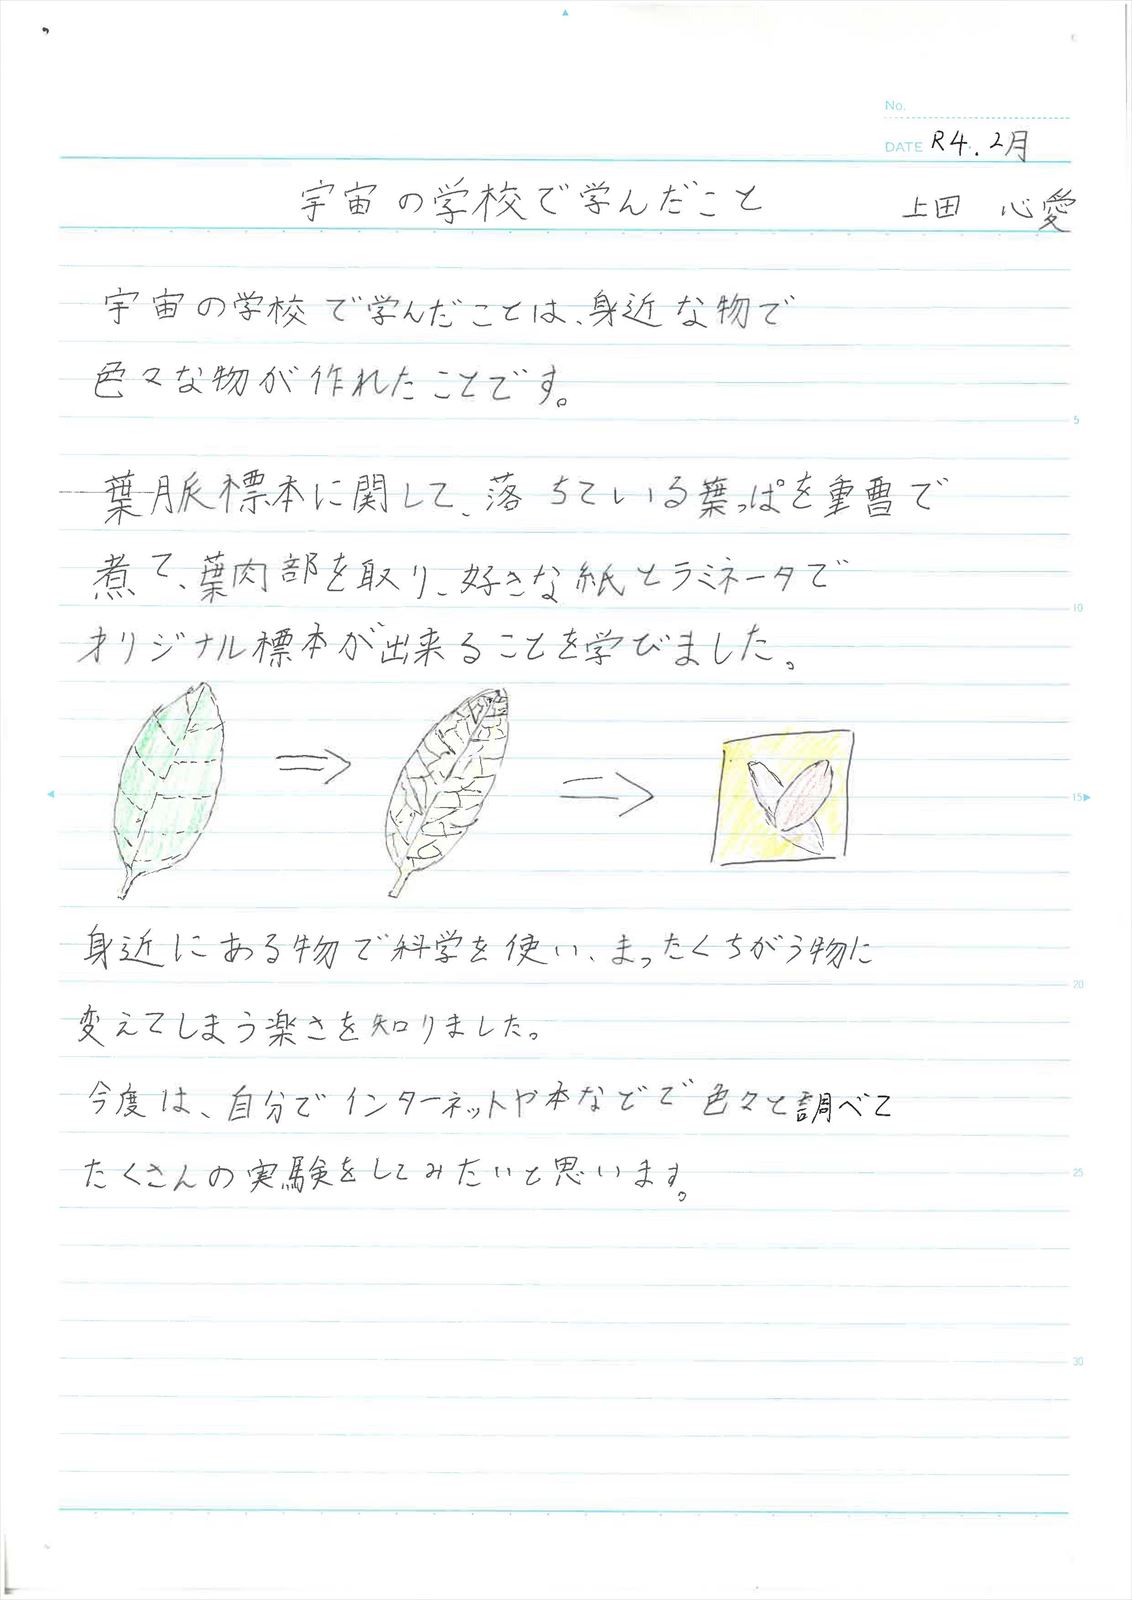 No.
DATE R4.2月
宇宙の学校で学んだこと 上田 心愛
宇宙の学校で学んだことは、身近な物で
色々な物が作れたことです。
5
葉脈標本に関して、落ちている葉っぱを重曹で
煮て、葉肉部を取り、好きな紙とラミネータで
10
オリジナル標本が出来ることを学びました。
15
身近にある物で科学を使い、まったくちがう物に
20
変えてしまう楽さを知りました。
今度は、自分でインターネットや本などで色々と調べて
たくさんの実験をしてみたいと思います。
25
30